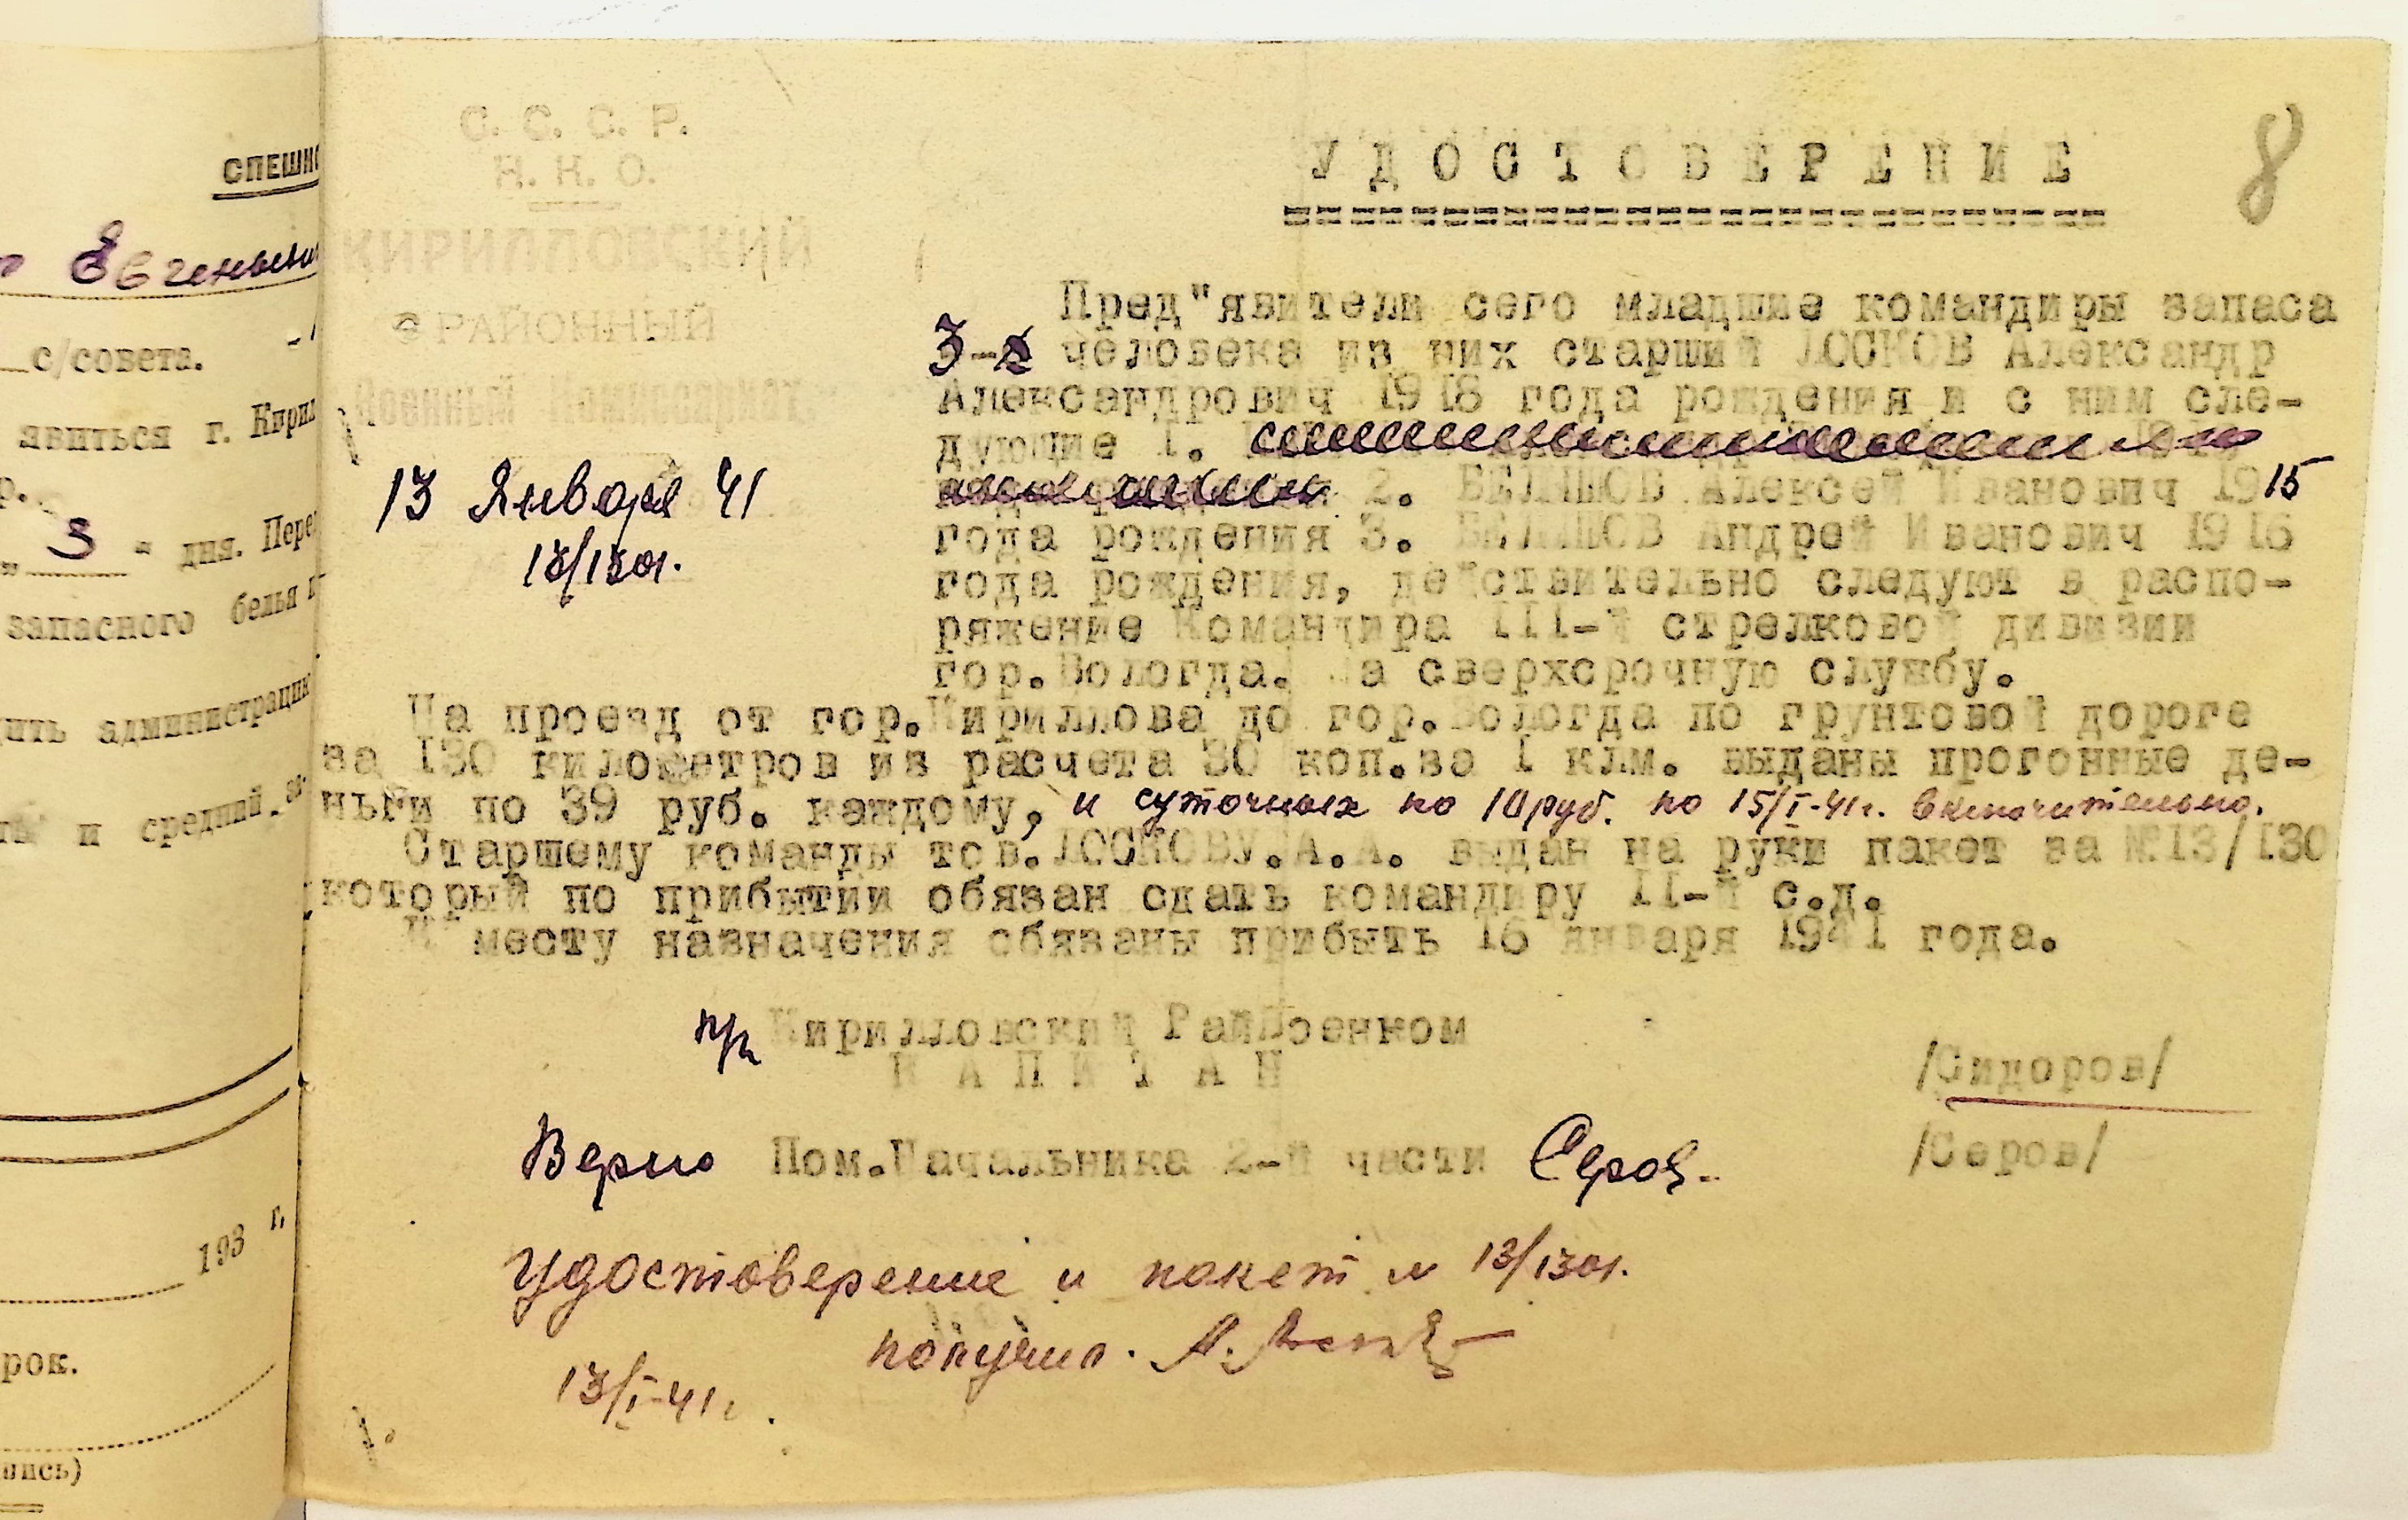 СПЕШНО
Евгеньеви
с/совета.
явиться г. Кирил
3 " дня. Пере
запасного белья и
дить администрации
и средний
193 г.
рок.
пись)
С. С. С. Р.
Н. К. О.
КИРИЛЛОВСКИЙ
РАЙОННЫЙ
Военный Комиссариат
13 Января 41
13/1301.
8
УДОСТОВЕРЕНИЕ
Пред"явители сего младшие командиры запаса
3-х человека из них старший ЛОСКОВ Александр
Александрович 1918 года рождения и с ним сле-
дующие I.
2. БЕЛЯШОВ Алексей Иванович 1915
года рождения 3. БЕЛЯШОВ Андрей Иванович 1916
года рождения, действительно следуют в распо-
ряжение Командира III-й стрелковой дивизии
гор.Вологда. На сверхсрочную службу.
На проезд от гор.Кириллова до гор.Вологда по грунтовой дороге
за I30 километров из расчета 30 коп.за I клм. выданы прогонные де-
ньги по 39 руб. каждому, и суточных по 10 руб. по 15/I-41г. включительно.
Старшему команды тов.ЛОСКОВУ.А.А. выдан на руки пакет за №I3/I30
который по прибытии обязан сдать командиру II-й с.д.
К месту назначения обязаны прибыть 16 января 1941 года.
п/п Кирилловский РайВоенком
КАПИТАН /Сидоров/
Верно Пом.Начальника 2-й части Серов /Серов/
Удостоверение и пакет № 13/1301.
получил. А. Лосков
13/I-41г.